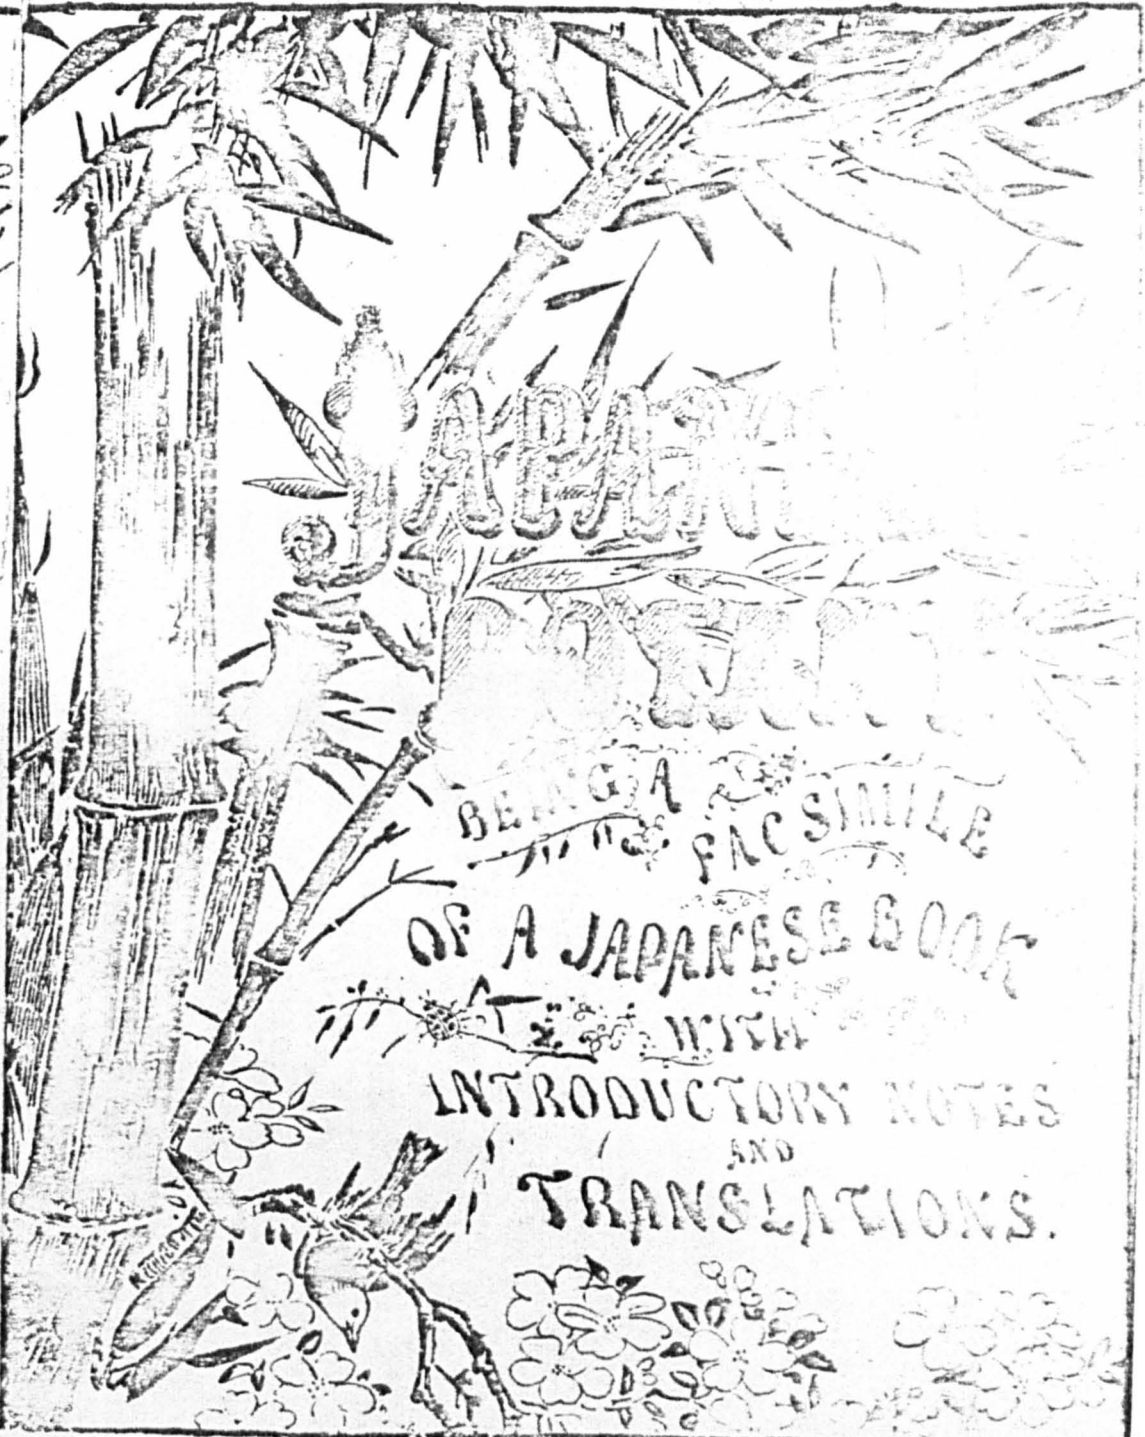 JAPANESE
BEING A
FACSIMILE
OF A JAPANESE BOOK
WITH
INTRODUCTORY NOTES
AND
TRANSLATIONS.